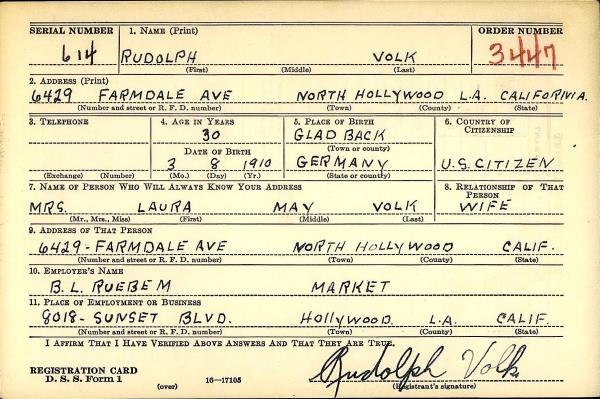 SERIAL NUMBER 1. NAME (Print) ORDER NUMBER
614 RUDOLPH VOLK 3447
(First) (Middle) (Last)
2. ADDRESS (Print)
6429 FARMDALE AVE NORTH HOLLYWOOD L.A. CALIFORINIA.
(Number and street or R. F. D. number) (Town) (County) (State)
3. TELEPHONE 4. AGE IN YEARS 5. PLACE OF BIRTH 6. COUNTRY OF CITIZENSHIP
30 GLADBACK
DATE OF BIRTH (Town or county)
3 8 1910 GERMANY U.S. CITIZEN
(Exchange) (Number) (Mo.) (Day) (Yr.) (State or country)
7. NAME OF PERSON WHO WILL ALWAYS KNOW YOUR ADDRESS 8. RELATIONSHIP OF THAT PERSON
MRS. LAURA MAY VOLK WIFE
(Mr., Mrs., Miss) (First) (Middle) (Last)
9. ADDRESS OF THAT PERSON
6429-FARMDALE AVE NORTH HOLLYWOOD CALIF.
(Number and street or R. F. D. number) (Town) (County) (State)
10. EMPLOYER'S NAME
B.L. RUEBEM MARKET
11. PLACE OF EMPLOYMENT OR BUSINESS
8018-SUNSET BLVD. HOLLYWOOD. L.A. CALIF.
(Number and street or R. F. D. number) (Town) (County) (State)
I AFFIRM THAT I HAVE VERIFIED ABOVE ANSWERS AND THAT THEY ARE TRUE.
Rudolph Volk
REGISTRATION CARD
D. S. S. Form 1 (over) 16—17105 (Registrant's signature)